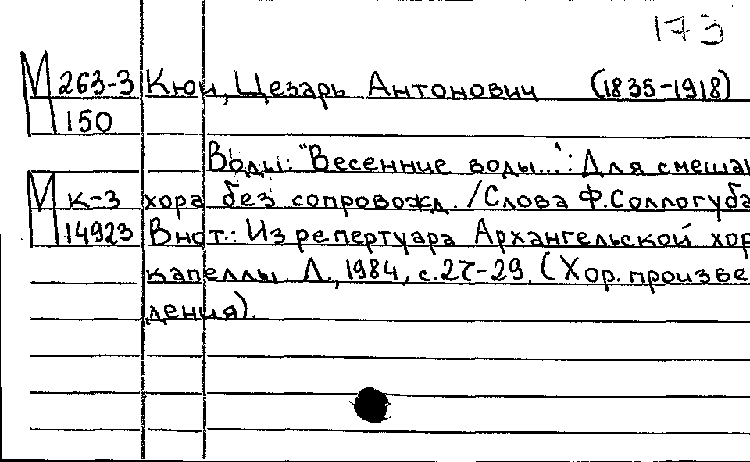 173
М 263-3 Кюи, Цезарь Антонович (1835-1918)
150
Воды: "Весенние воды...": Для смешан
М к-3 хора без сопровожд. /Слова Ф.Соллогуба
14923 В нот.: Из репертуара Архангельской хор
капеллы Л., 1984, с.27-29. (Хор. произве
дения).